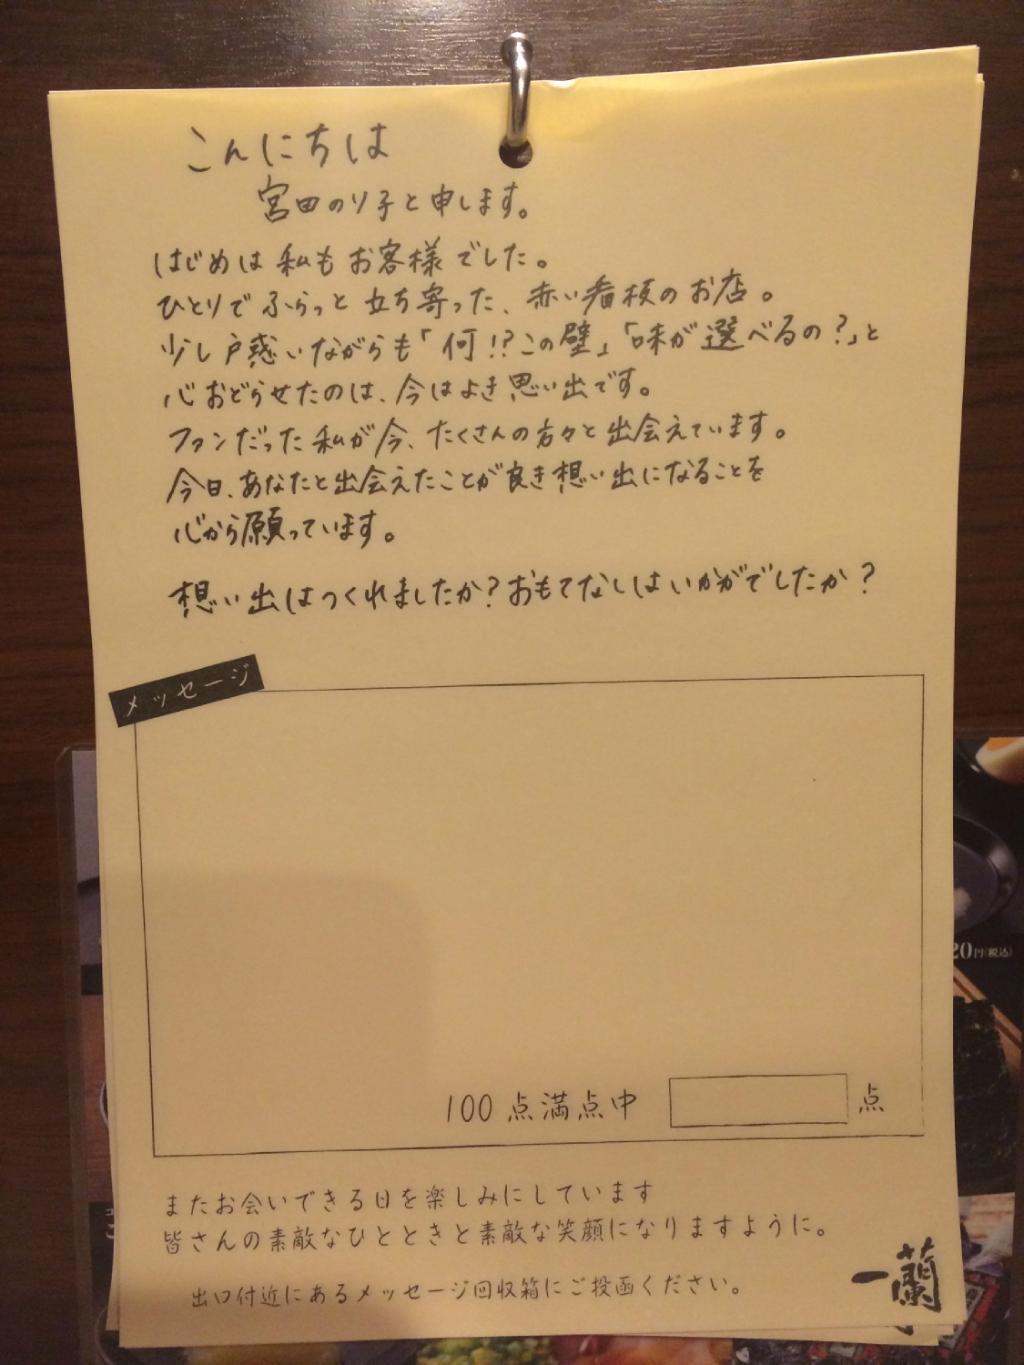 こんにちは
宮田のり子と申します。
はじめは私もお客様でした。
ひとりでふらっと立ち寄った、赤い看板のお店。
少し戸惑いながらも「何!?この壁」「味が選べるの?」と
心おどらせたのは、今はよき思い出です。
ファンだった私が今、たくさんの方々と出会えています。
今日、あなたと出会えたことが良き想い出になることを
心から願っています。
想い出はつくれましたか?おもてなしはいかがでしたか?
メッセージ
100点満点中 点
またお会いできる日を楽しみにしています
皆さんの素敵なひとときと素敵な笑顔になりますように。
出口付近にあるメッセージ回収箱にご投函ください。
一蘭
20円(税込)